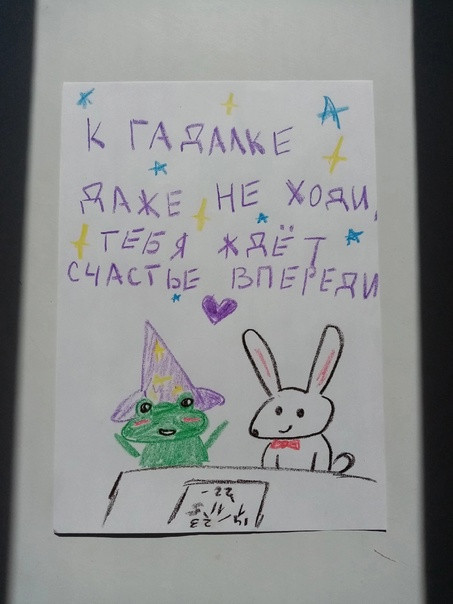 К ГАДАЛКЕ
ДАЖЕ НЕ ХОДИ,
ТЕБЯ ЖДЁТ
СЧАСТЬЕ ВПЕРЕДИ